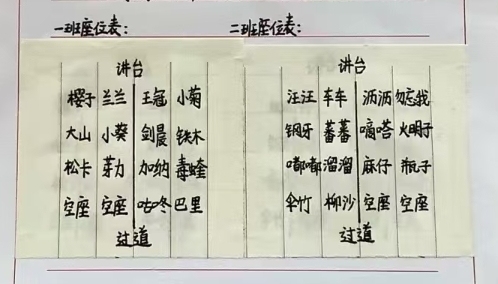 一班座位表：
讲台
樱子 兰兰 王冠 小菊
大山 小葵 剑晨 铁木
松卡 芽力 加纳 毒蝰
空座 空座 咕咚 巴里
过道
二班座位表：
讲台
汪汪 车车 洒洒 勿忘我
钢牙 蕃蕃 嘀嗒 火明子
嘟嘟 溜溜 麻仔 瓶子
伞竹 柳沙 空座 空座
过道